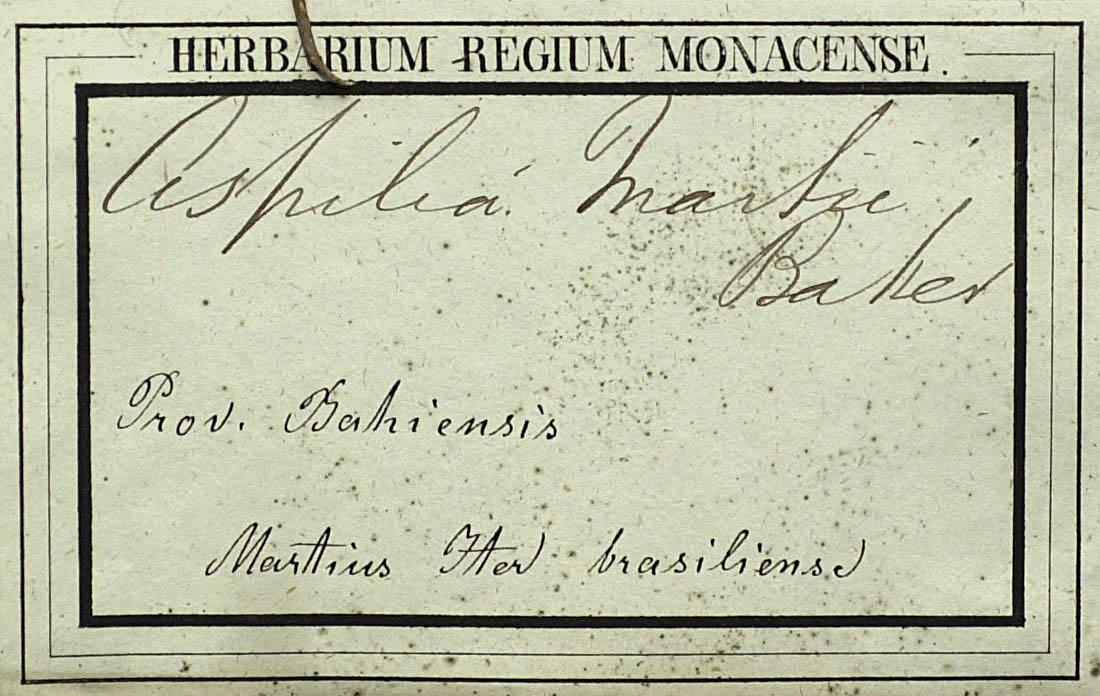 HERBARIUM REGIUM MONACENSE.
Aspilia Martii
Baker
Prov. Bahiensis
Martius Iter brasiliense